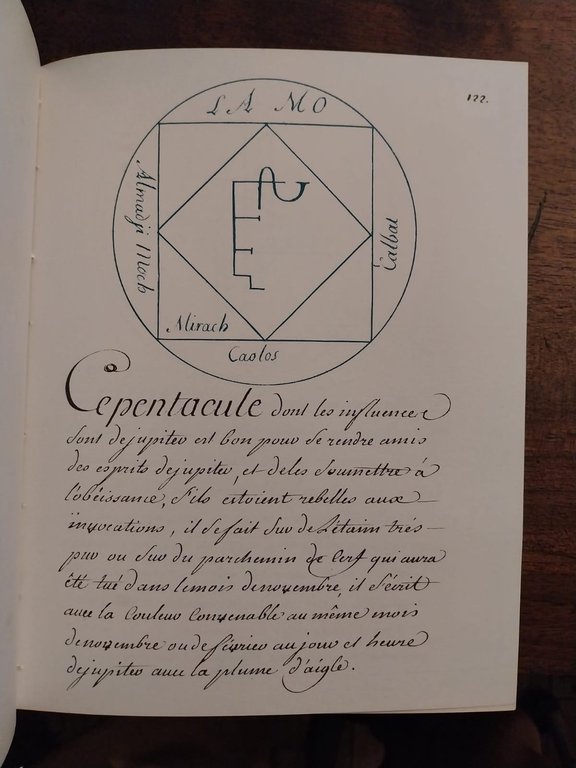 122.
LA MO
Almadji Moch
Calbat
Mirach
Caolos
Cepentacule dont les influences
sont dejupiter est bon pour se rendre amis
des esprits dejupiter, et deles soumettre á
l'obéissance, s'ils estoient rebelles aux
invocations, il se fait sur de l'étaim trés
pur ou sur du parchemin de cerf qui aura
été tué dans lemois denovembre, il s'écrit
avec la couleur convenable au même mois
denovembre ou de février au jour et heure
dejupiter avec la plume d'aigle.